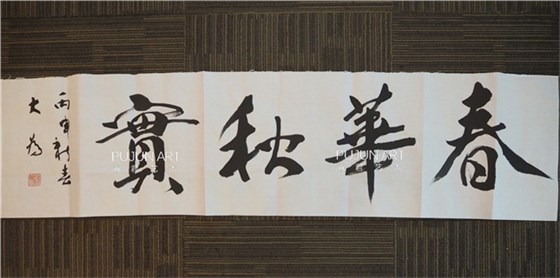 春華秋實
丙 新春
大為
PUJUN ART
PUJUN ART